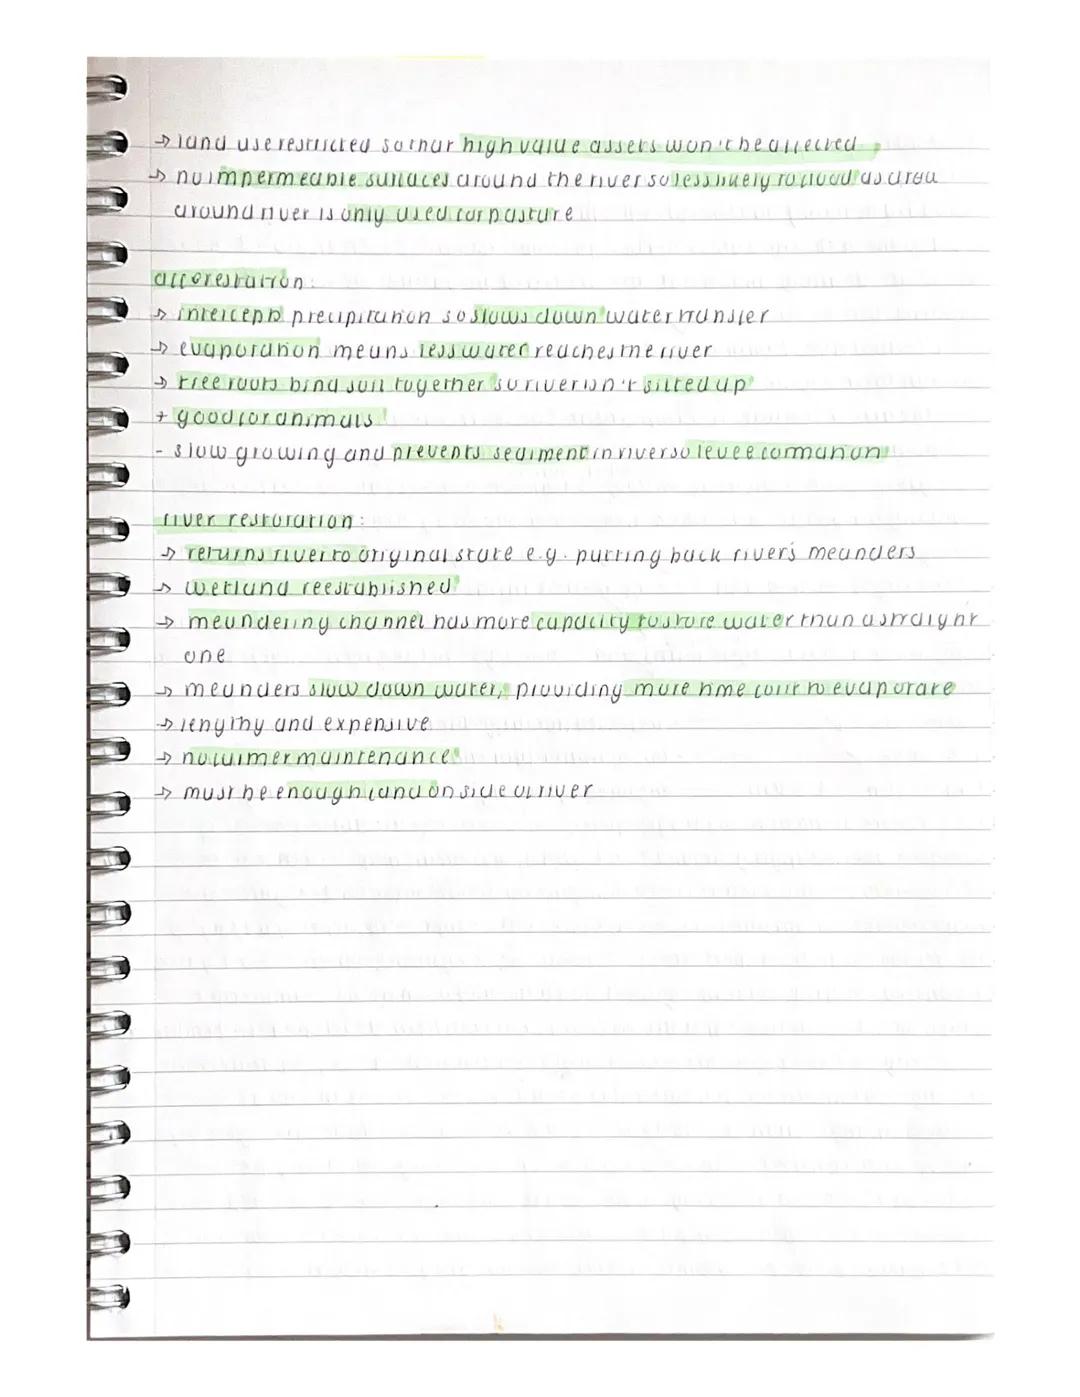 → land use restricted so that high value assets won't be affected
→ no impermeable surfaces around the river so less likely to flood as area
around river is only used for pasture
afforestation:
→ intercepts precipitation so slows down water transfer
→ evaporation means less water reaches the river
→ tree roots bind soil together so river isn't silted up
+ good for animals
- slow growing and prevents sediment in river so levee formation
river restoration:
→ returns river to original state e.g. putting back river's meanders
→ wetland reestablished
→ meandering channel has more capacity to store water than a straight
one
→ meanders slow down water, providing more time for it to evaporate
→ lengthy and expensive
→ no further maintenance
→ must be enough land on side of river